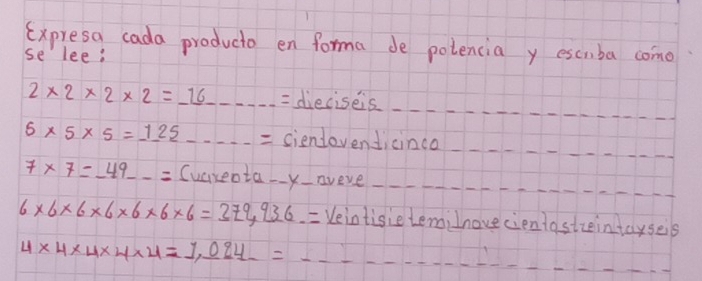 Expresa cada producto en forma de potencia y escriba como
se lee:
2 × 2 × 2 × 2 = 16 = dieciséis
5 × 5 × 5 = 125 = cientovendicinco
7 × 7 = 49 = Cuarenta y nueve
6 × 6 × 6 × 6 × 6 × 6 × 6 = 279,936 = Veintisietemilnovecientostreintayseis
4 × 4 × 4 × 4 × 4 = 1,024 =